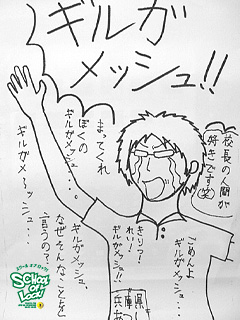 ギルガ
メッシュ!!
校長の人間が
好きです(笑)
まってくれ
ぼくの
ギルガメッシュ・・・。
ギルガメーッシュ・・・
ごめんよ
ギルガメッシュ・・・
きりつ?
れい!
ギルガメッシュ!!
なぜそんなことを
言うの?、
兵庫県
スクールオブロック!
SCHOOL
OF
LOCK!